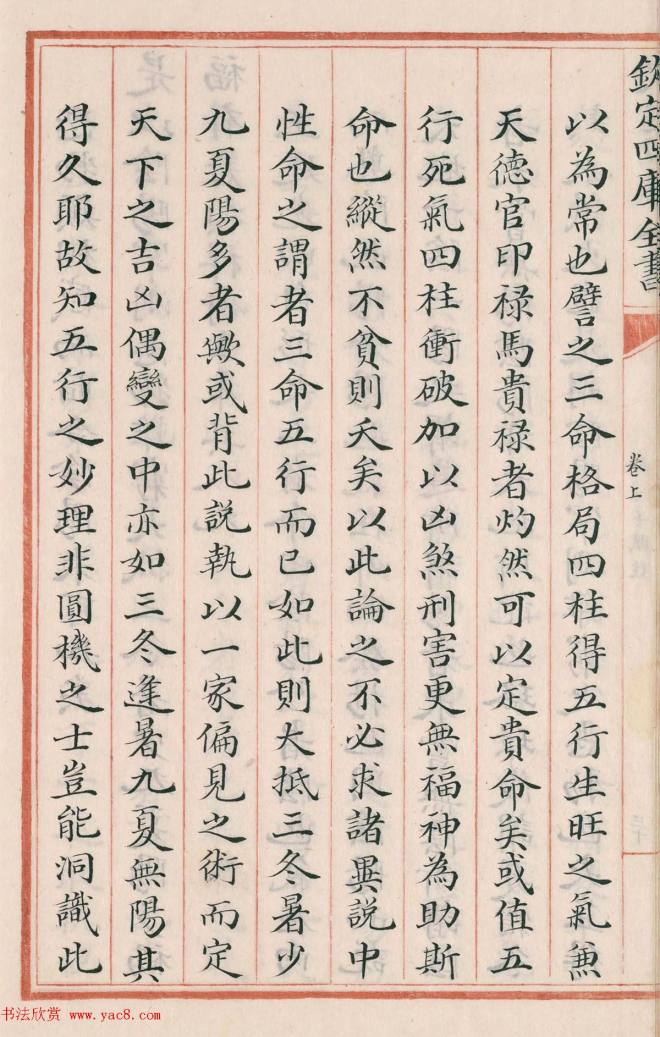 欽定四庫全書
卷上
以為常也譬之三命格局四柱得五行生旺之氣兼
天德官印禄馬貴禄者灼然可以定貴命矣或值五
行死氣四柱衝破加以凶煞刑害更無福神為助斯
命也縱然不貧則夭矣以此論之不必求諸異説中
性命之謂者三命五行而已如此則大抵三冬暑少
九夏陽多者歟或背此説執以一家偏見之術而定
天下之吉凶偶變之中亦如三冬逢暑九夏無陽其
得久耶故知五行之妙理非圓機之士豈能洞識此
书法欣赏 www.yac8.com